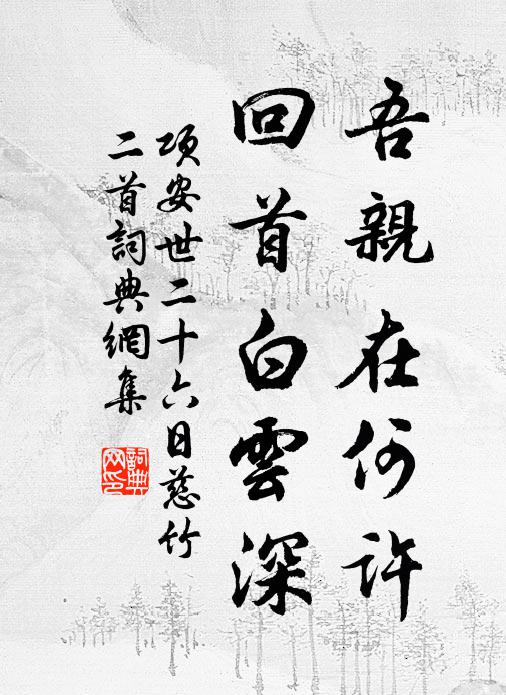 吾親在何許
回首白雲深
項安世二十六日慈竹
二首詞典網集
詞典
网印